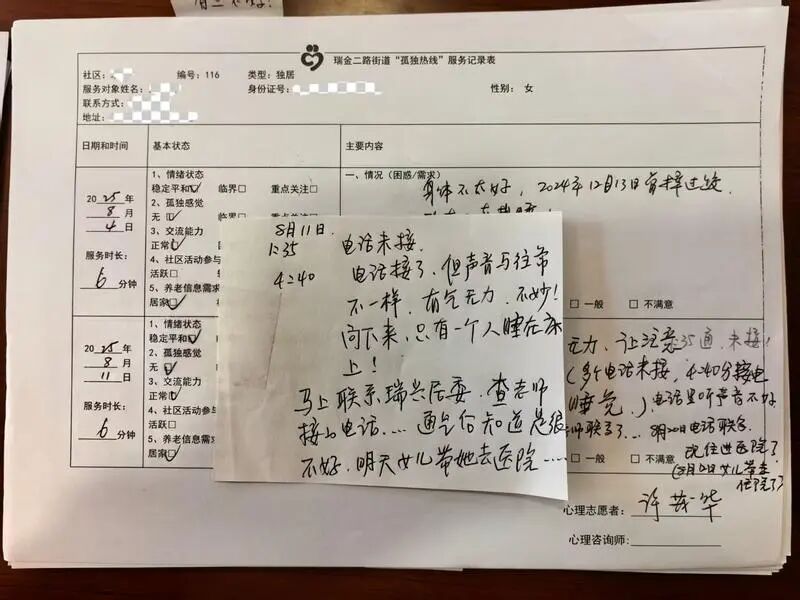 瑞金二路街道“孤独热线”服务记录表
社区：
编号：116
类型：独居
服务对象姓名：
身份证号：
性别：女
联系方式：
地址：
日期和时间
基本状态
主要内容
2025年
8月
4日
服务时长：
6分钟
1、情绪状态
稳定平和☑ 临界□ 重点关注□
2、孤独感觉
无☑ 临界□ 重点关注□
3、交流能力
正常☑
4、社区活动参与
活跃□
5、养老信息需求
居家☑
一、情况（困惑/需求）
身体不太好，2024年12月13日
□ 一般 □ 不满意
8月11日
1:35 电话未接.
4:40 电话接了、但声音与往常
不一样，有气无力，不妙！
问下来，只有一个人睡在床
上！
马上联系瑞兴居委，查老师
接的电话....通气后知道是很
不好，明天女儿带她去医院....
2025年
8月
11日
服务时长：
6分钟
1、情绪状态
稳定平和☑
2、孤独感觉
无☑
3、交流能力
正常☑
4、社区活动参与
活跃□
5、养老信息需求
居家☑
无力，
（多个电话未接，4:40分接电
电话里听声音不好
8月20日电话联系
现住进医院了
□ 一般 □ 不满意
女儿带去
住院了）
心理志愿者：许茂华
心理咨询师：